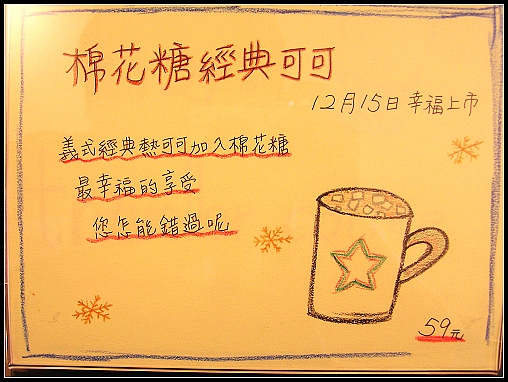 棉花糖經典可可
12月15日幸福上市
義式經典熱可可加入棉花糖
最幸福的享受
您怎能錯過呢
59元